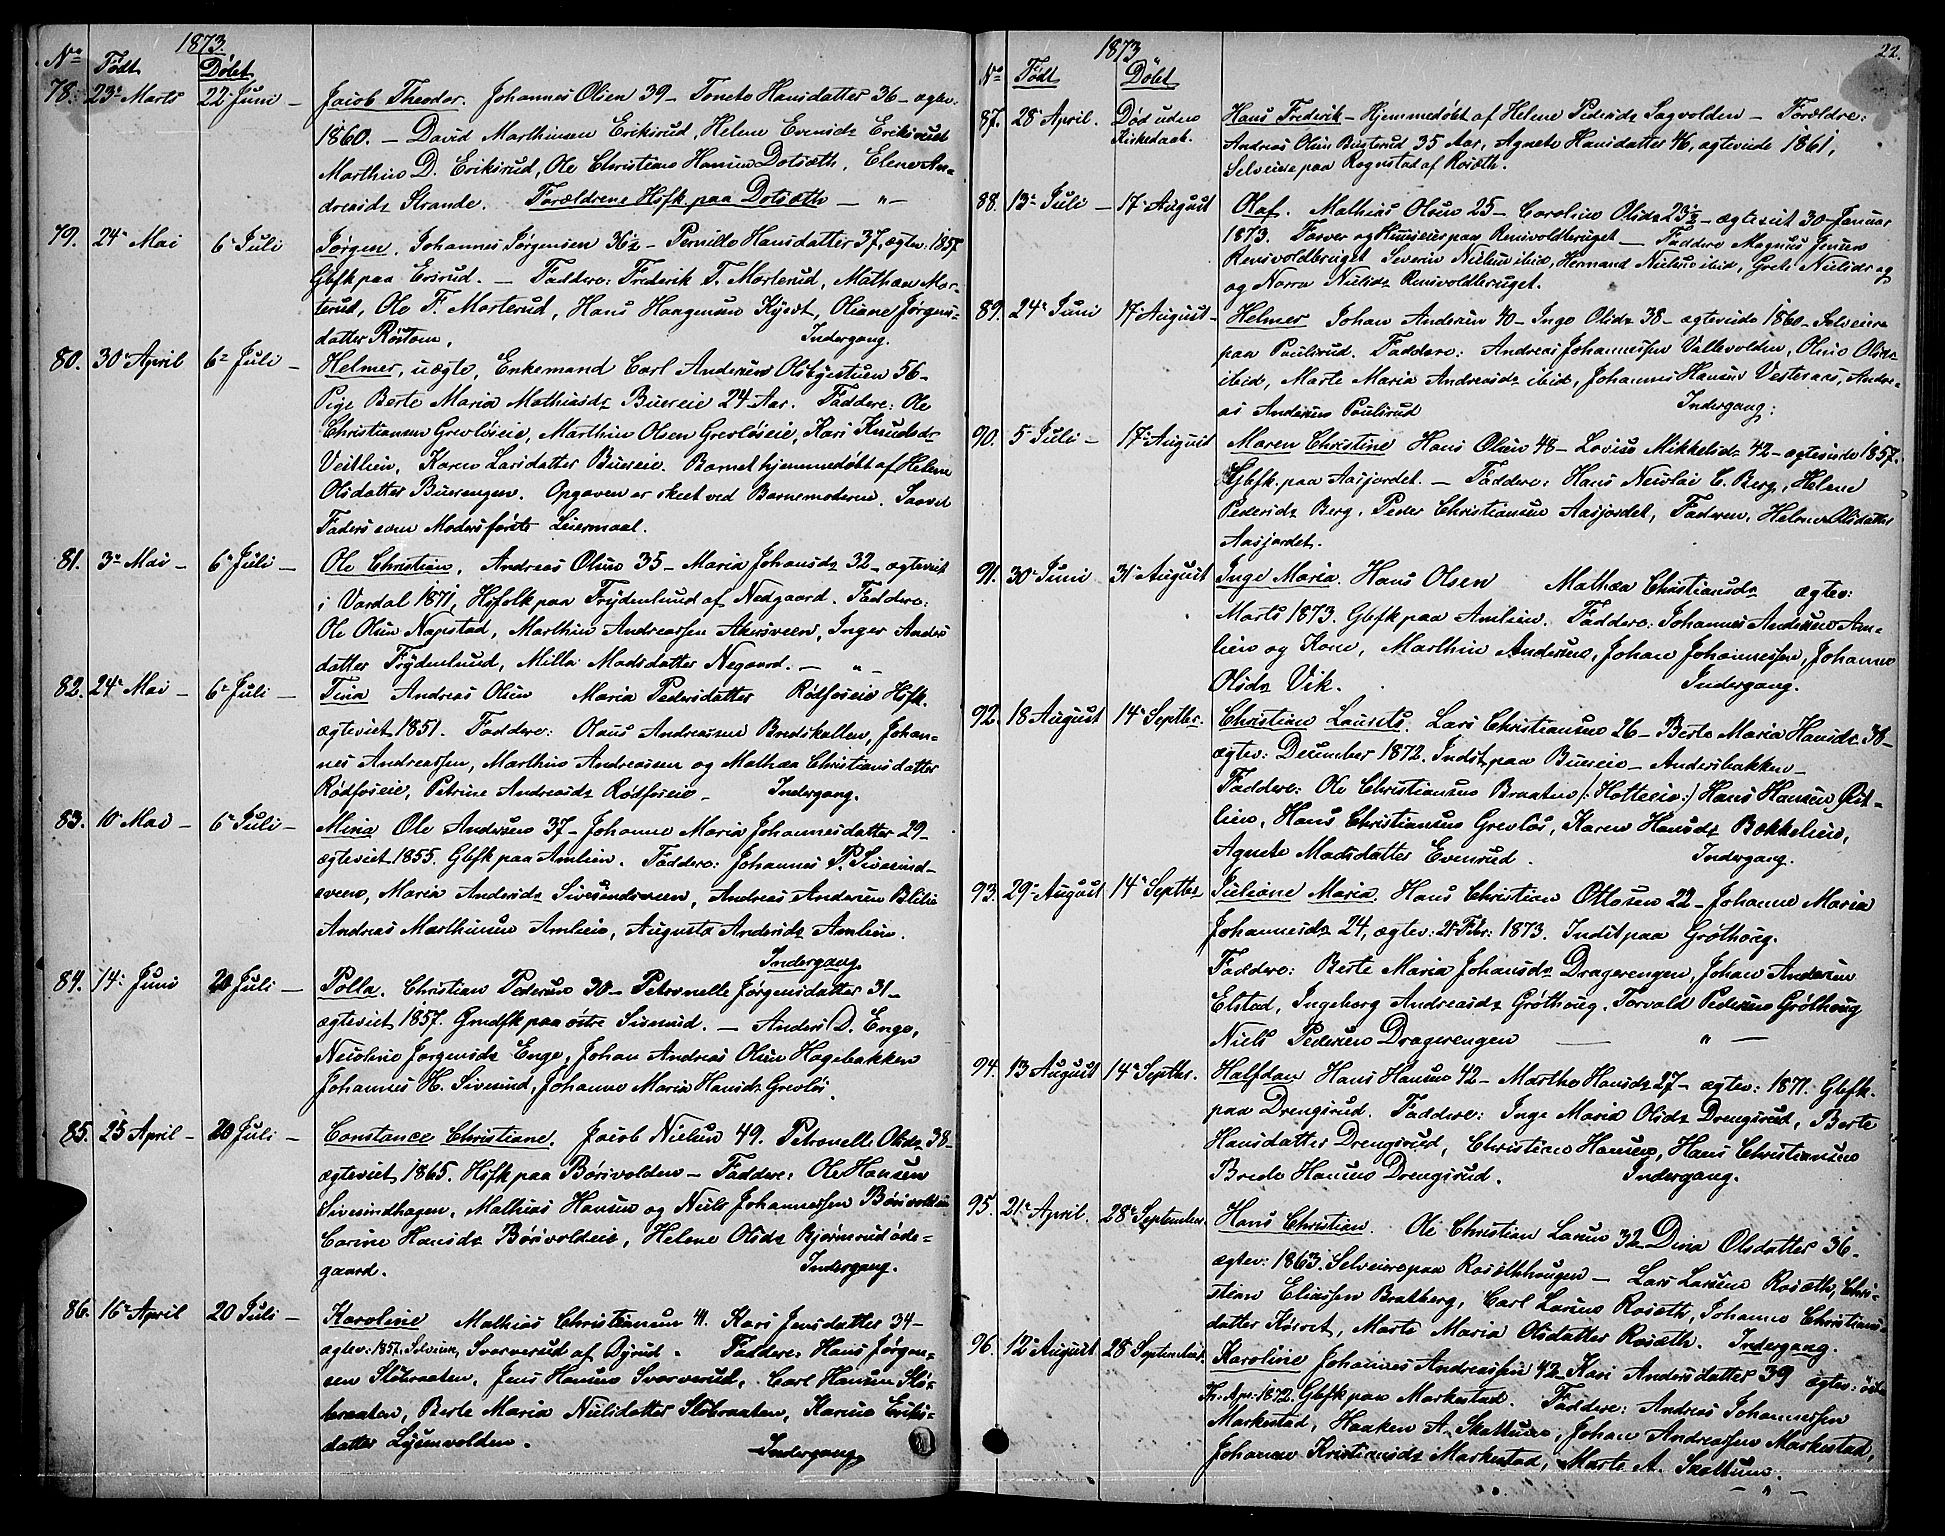 1873.
No Födt Döbt
78. 23e Marts 22 Juni – Jacob Theodor. Johannes Olsen 39 – Tonete Hansdatter 36 – ægtev:
1860. – David Marthinsen Eriksrud, Helene Evensdr Eriksrud
Marthin D. Eriksrud, Ole Christian Hansen Dotsæth, Elene An-
dreasdr Strande. Forældrene Hsfk paa Dotsæth – " –
79. 24e Mai 6e Juli Jörgen. Johannes Jörgensen 36½ – Pernille Hansdatter 37, ægtev: 1857
Gbfk paa Ersrud. – Faddere: Frederik T. Morterud, Mathea Mor-
terud, Ole F. Morterud, Hans Haagensen Kyset, Oliane Jörgens-
datter Röstom. Indergang.
80. 30e April 6e Juli – Helmer, uægte, Enkemand Carl Andersen Olsbystuen 56 –
Pige Berte Maria Mathiasdr Buereie 24 Aar. Faddere: Ole
Christiansen Grevlöseie, Marthin Olsen Grevlöseie, Kari Knudsdr
Vestlien, Karen Larsdatter Buereie. Barnet hjemmedöbt af Helene
Olsdatter Buerengen. Opgaven er skeet ved Barnemoderen. Saavel
Faders som Moders förste Leiermaal.
81. 3e Mai – 6e Juli – Ole Christian. Andreas Olsen 35 – Maria Johansdr 32 – ægteviet
i Vardal 1871, Hsfolk paa Frydenlund af Nedgaard. Faddere:
Ole Olsen Napstad, Marthin Andreassen Akersveen, Inger Anders
datter Frydenlund, Milla Madsdatter Negaard. – " –
82. 24e Mai – 6e Juli – Tina Andreas Olsen Maria Pedersdatter Rödfoseie Hsfk.
ægteviet 1851. Faddere: Olaus Andreasen Bredskallen, Johan-
nes Andreassen, Marthin Andreassen og Mathea Christiansdatter
Rödfoseie, Petrine Andreasdr Rödfoseie – Indergang.
83. 10e Mai – 6e Juli – Mina Ole Andersen 37 – Johanne Maria Johannesdatter 29 –
ægteviet 1855. Gbfk paa Amlien. Faddere: Johannes P. Sivesind-
sveen, Maria Andersdr Sivesindsveen, Andreas Andersen Blilie
Andreas Marthinsen Amlien, Augusta Andersdr Amlien.
Indergang
84. 14e Juni 20 Juli – Polla. Christian Pedersen 30 – Petronelle Jörgensdatter 31 –
ægteviet 1857. Grndfk paa östre Sivesind. – Anders D. Enge,
Nicoline Jörgensdr Enge, Johan Andreas Olsen Hagebakken
Johannes H. Sivesind, Johanne Maria Hansdr Grevlös.
85. 25 April – 20 Juli – Constance Christiane. Jacob Nielsen 49. Petronelle Olsdr 38 –
ægteviet 1865. Hsfk paa Börsvolden – Faddere: Ole Hansen
Sivesindhagen, Mathias Hansen og Niels Johannessen Börsvolden
Carine Hansdr Börsvoldeie, Helene Olsdr Bjørnerud öde-
gaard. Indergang.
86. 16e April 20 Juli – Karoline Mathias Christiansen 41. Kari Jensdatter 34 –
ægtev: 1857. Selveiere, Svarverud af Dysrud. Faddere: Hans Jörgen-
sen Slöbraaten, Jens Hansen Svarverud, Carl Hansen Slö-
braaten, Berte Maria Nielsdatter Slöbraaten, Karine Eriks-
datter Lysenvolden. Indergang
22.
1873
No Födt Döbt
87. 28 April. Död uden Kirkedaab. Hans Frederik – Hjemmedöbt af Helene Pedersdr Sagvolden – Forældre:
Andreas Olsen Bugterud 35 Aar, Agnete Hansdatter 46, ægteviede 1861,
Selveiere paa Rognstad af Rosæth.
88. 13e Juli – 17e August Olaf. Mathias Olsen 25 – Caroline Olsdr 23½ – ægteviet 30 Januar
1873. Farver og Huuseier paa Reinsvoldbruget – Faddere Magnus Jensen
Reinsvoldbruget Severin Nielsen ibid, Hermand Nielsen ibid, Grete Nielsdr og
og Norra Nielsdr Reinsvoldbruget.
89. 24e Juni 17 August – Helmer Johan Andersen 40 – Inge Olsdr 38 – ægteviede 1860 – Selveiere
paa Paulsrud. Faddere: Andreas Johannessen Vallevolden, Oline Olsdr
ibid, Marte Maria Andreasdr ibid, Johannes Hansen Vesteraas, Andre-
as Andersen Paulsrud Indergang:
90. 5e Juli – 17e August Maren Christine Hans Olsen 48 – Lovise Mikkelsdr 42 – ægteviede 1857.
Gbfk. paa Aasjordet. – Faddere: Hans Nicolai C. Berg, Helene
Pedersdr Berg, Peder Christiansen Aasjordet, Faderen, Helene Olsdatter
Aasjordet.
91. 30e Juni 31e August Inge Maria. Hans Olsen Mathea Christiansdr ægtev:
Marts 1873. Gbfk paa Amlien. Faddere: Johannes Andersen Am-
lien og Kone, Marthin Andersen, Johan Johannessen, Johanne
Olsdr Vik. Indergang.
92. 18 August 14e Septbr. Christian Laurits. Lars Christiansen 26 – Berte Maria Hansdr 38 –
ægtev: December 1872. Indst paa Buereie – Andersbakken –
Faddere: Ole Christiansen Braaten /: Hotteeie :/ Hans Hansen Öst-
lien, Hans Christiansen Grevlös, Karen Hansdr Bækkelien,
Agnete Madsdatter Evenrud. Indergang.
93. 29e August 14e Septbr Juliane Maria. Hans Christian Ottosen 22 – Johanne Maria
Johannesdr 24, ægtev: 21 Febr: 1873. Indst paa Gröthoug.
Faddere: Berte Maria Johansdr Dragerengen, Johan Andersen
Elstad, Ingeborg Andreasdr Gröthoug. Torvald Pedersen Gröthoug
Niels Pedersen Dragerengen – " –
94. 13 August 14e Septbr. Halfdan Hans Hansen 42 – Marthe Hansdr 27 – ægtev: 1871. Gbfk.
paa Drengsrud. Faddere: Inge Maria Olsdr Drengsrud, Berte
Hansdatter Drengsrud, Christian Hansen, Hans Christiansen
Brede Hansen Drengsrud. Indergang.
95. 21e April. 28e September. Hans Christian. Ole Christian Larsen 32 Dina Olsdatter 36 –
ægtev: 1863. Selveiere paa Rosæthhaugen – Lars Larsen Rosæth, Chri-
stian Eliassen Bratberg, Carl Larsen Rosæth, Johanne Christians-
datter Kösset, Marte Maria Olsdatter Rosæth. Indergang.
96. 12e August 28 September Karoline Johannes Andreassen 42 – Kari Andersdatter 39 ægtev: östre
Tn: Apr: 1872. Gbfk paa Markestad. Faddere: Andreas Johannessen
Markestad, Haaken A. Skattum, Johan Andreassen Markestad,
Johanne Kristiansdr Markestad, Marte A. Skattum.
– " –